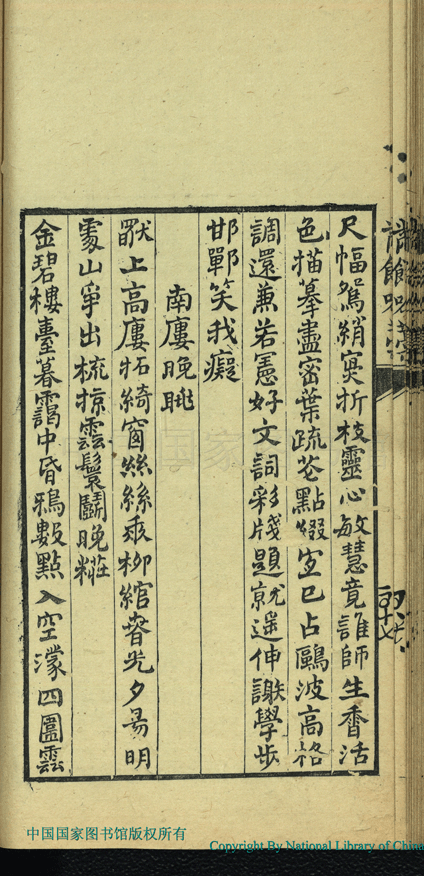 尺幅鴛綃寔折枝靈心敏慧竟誰師生香活
色描摹盡密葉疏花點綴宜已占鷗波高格
調還兼若憲好文詞彩牋題就遥伸謝學步
邯鄲笑我癡
南廔晚眺
獃上高廔拓綺窗絲絲垂柳綰春光夕易明
處山爭出梳掠雲鬟鬭晚糚
金碧樓臺暮靄中昏鴉數點入空濛四圍雲
中国国家图书馆版权所有
Copyright By National Library of China